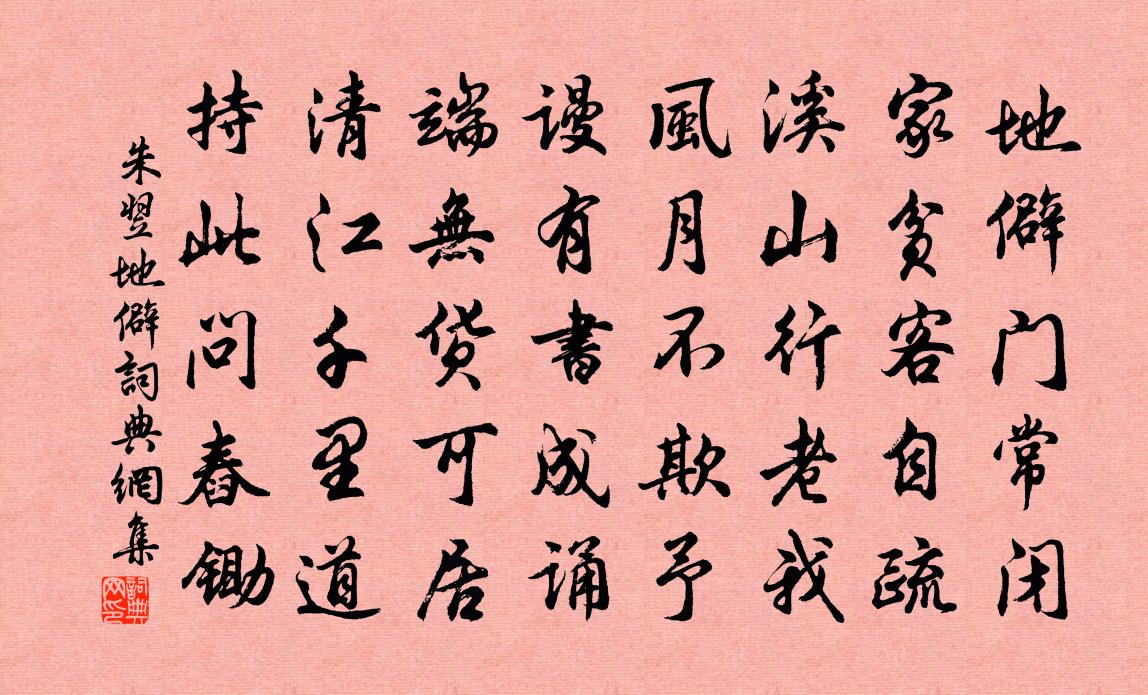 地僻门常闭
家貧客自疏
溪山行老我
風月不欺予
谩有書成诵
端無货可居
清江千里道
持此问舂锄
朱翌地僻詞典網集
詞典網印